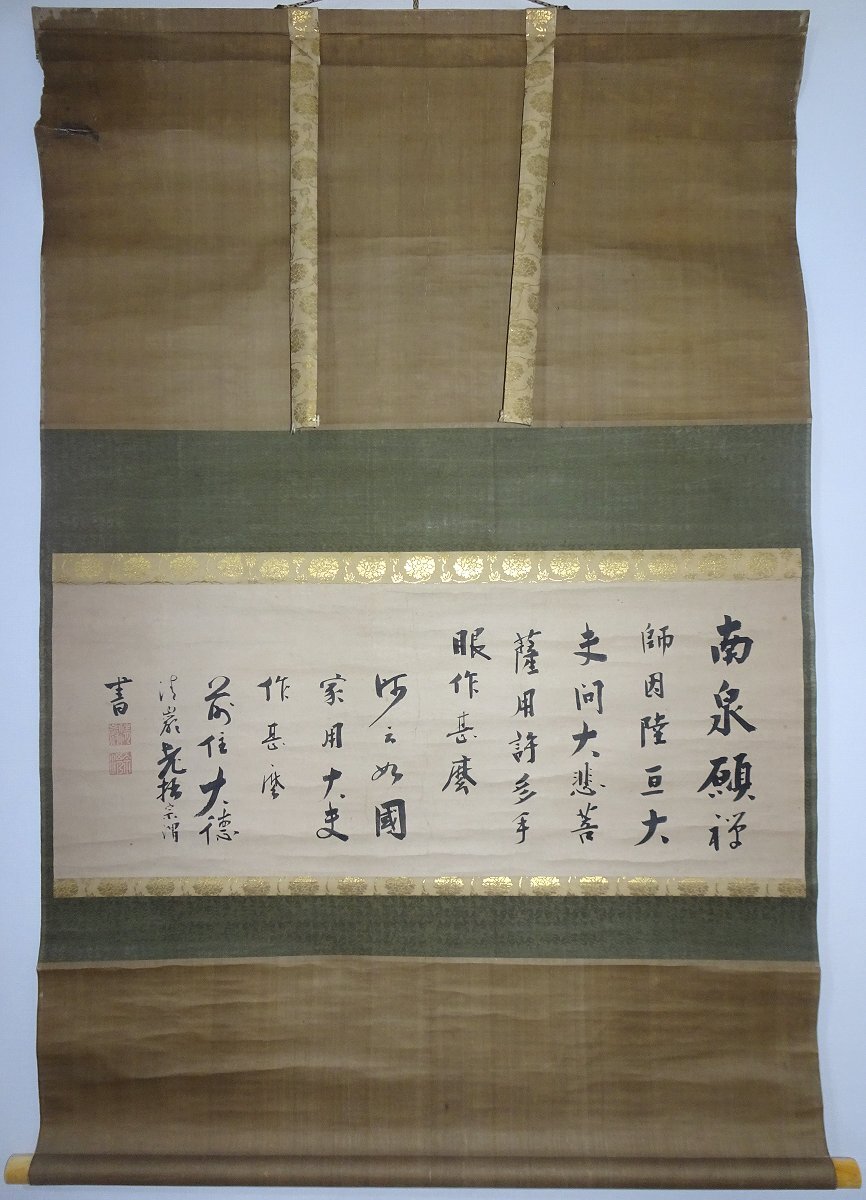 南泉願禅
師因陸亘大
夫問大悲菩
薩用許多手
眼作甚麼
師云如國
家用大夫
作甚麼
前住大徳
清巖老拙宗渭
書